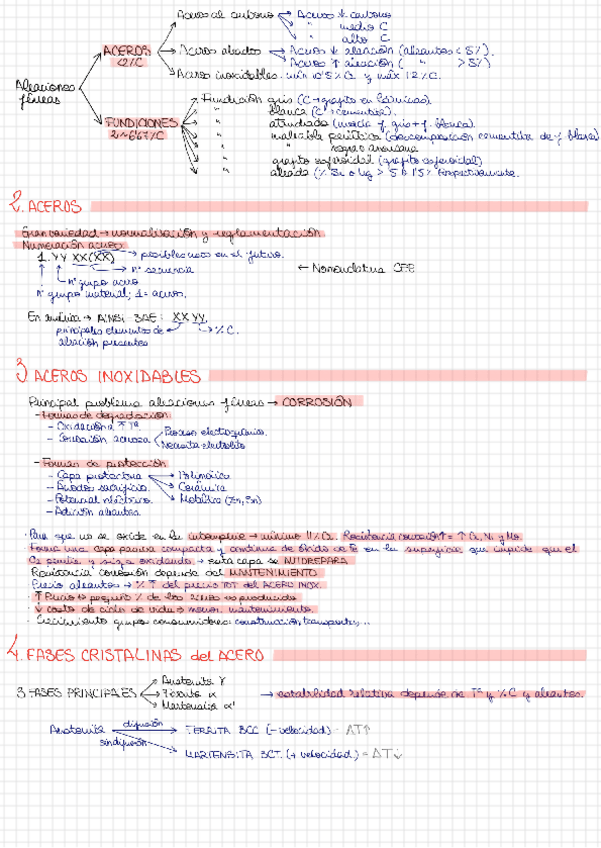 Aceros al carbono → Aceros ↓ carbono
" medio C
" alto C
ACEROS <2%C
Aceros aleados → Aceros ↓ aleación (aleantes < 5%)
Aceros ↑ aleación ( " > 5%)
Aceros inoxidables: mín 10'5% Cr y máx 1'2% C.
Aleaciones férreas
FUNDICIONES 2-6'67%C
Fundición gris (C → grafito en láminas).
" blanca (C → cementita).
" atruchada (mezcla f. gris + f. blanca).
" maleable perlítica (descomposición cementita de f. blanca)
" " negra americana
" grafito esferoidal (grafito esferoidal)
" aleada (% Si o Mg > 5 o 1'5% respectivamente.
2. ACEROS
Gran variedad → normalización y reglamentación
Numeración aceros:
1. YY XX(XX) → posibles usos en el futuro.
→ nº secuencia
← Nomenclatura CEE
nº grupo acero
nº grupo material; 1 = aceros.
En América → AINSI-SAE: XX YY
principales elementos de aleación presentes
→ % C.
3 ACEROS INOXIDABLES
Principal problema aleaciones férreas → CORROSIÓN
- Formas de degradación
- Oxidación a ↑ Tª
- Corrosión acuosa
Proceso electroquímico.
Necesita electrolito
- Formas de protección
- Capa protectora → Polimérica
- Ánodos sacrificio. Cerámica
- Potencial eléctrico. Metálica (Zn, Sn)
- Adición aleantes
· Para que no se oxide en la intemperie → mínimo 11% Cr. Resistencia corrosión = ↑ Cr, Ni y Mo.
· Forma una capa pasiva compacta y continua de óxido de en la superficie que impide que el
O₂ penetre y siga oxidando → esta capa se AUTOREPARA
· Resistencia corrosión depende del MANTENIMIENTO
· Precio aleantes → % ↑ del precio TOT del ACERO INOX.
· ↑ Precio → pequeño % de los aceros producidos
· ↓ costo de ciclo de vida → menor mantenimiento.
· Crecimiento grupos consumidores: construcción, transportes, ...
4. FASES CRISTALINAS del ACERO
3 FASES PRINCIPALES
Austenita γ
Ferrita α
Martensita α'
→ estabilidad relativa depende de Tª y % C y aleantes.
Austenita
difusión → FERRITA BCC (- velocidad) = ΔT↑
sin difusión → MARTENSITA BCT. (+ velocidad) = ΔT↓